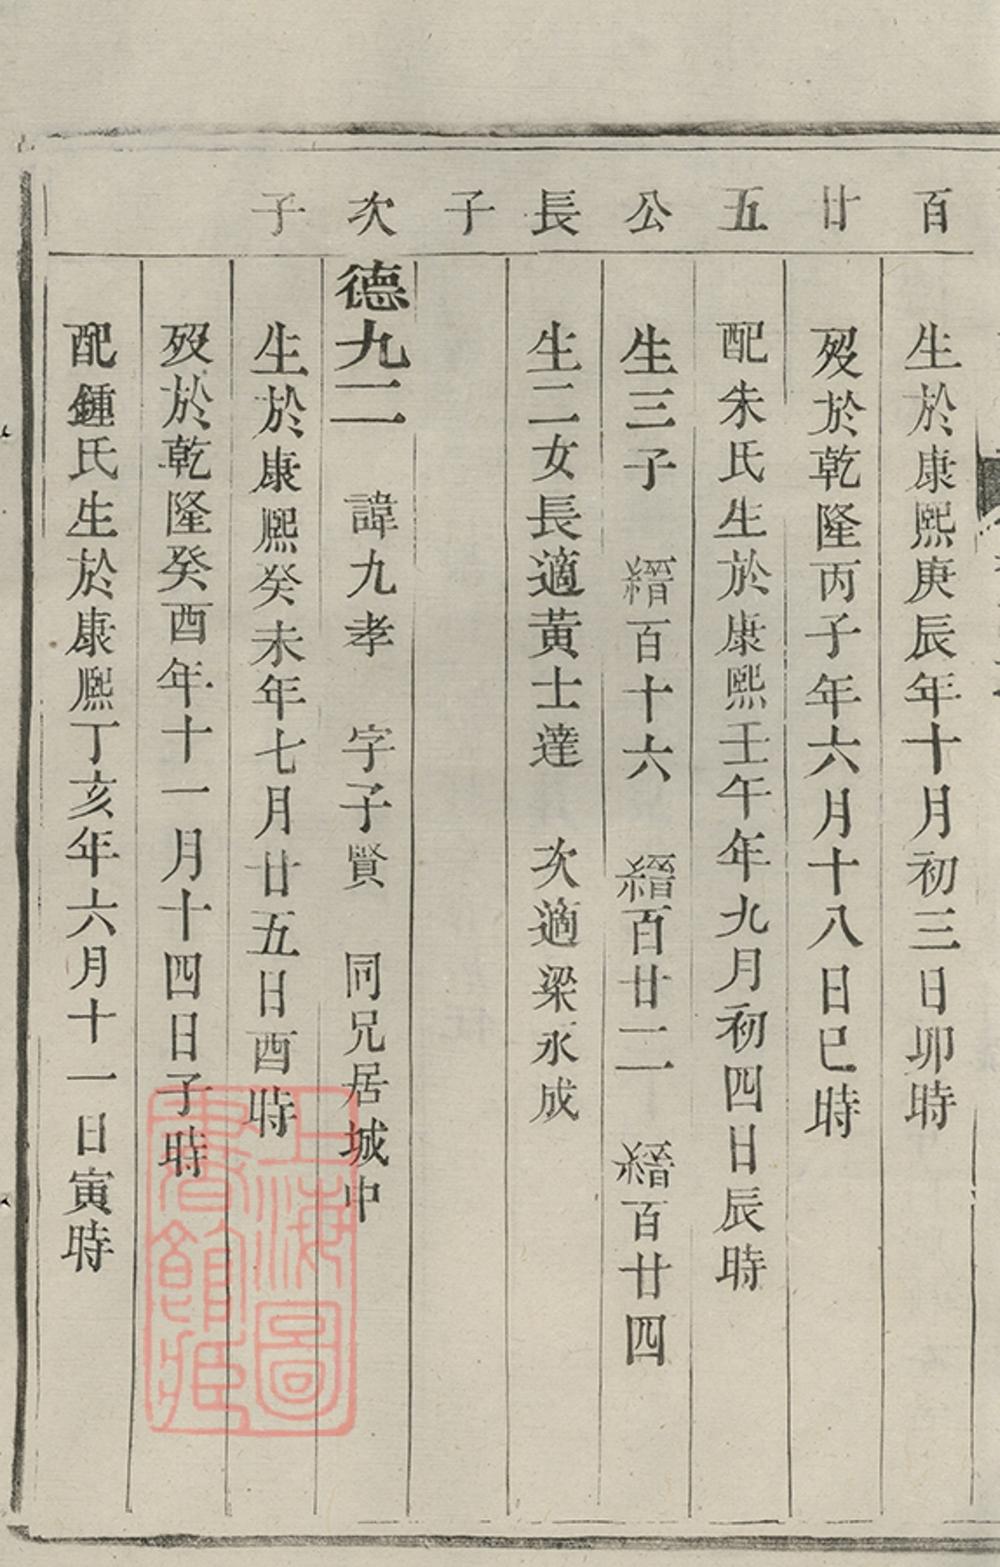 百廿五公長子 次子
生於康熙庚辰年十月初三日卯時
歿於乾隆丙子年六月十八日巳時
配朱氏生於康熙壬午年九月初四日辰時
生三子 縉百十六 縉百廿二 縉百廿四
生二女長適黃士達 次適梁永成
德九二 諱九孝 字子賢 同兄居城中
生於康熙癸未年七月廿五日酉時
歿於乾隆癸酉年十一月十四日子時
配鍾氏生於康熙丁亥年六月十一日寅時
上海圖
書館藏